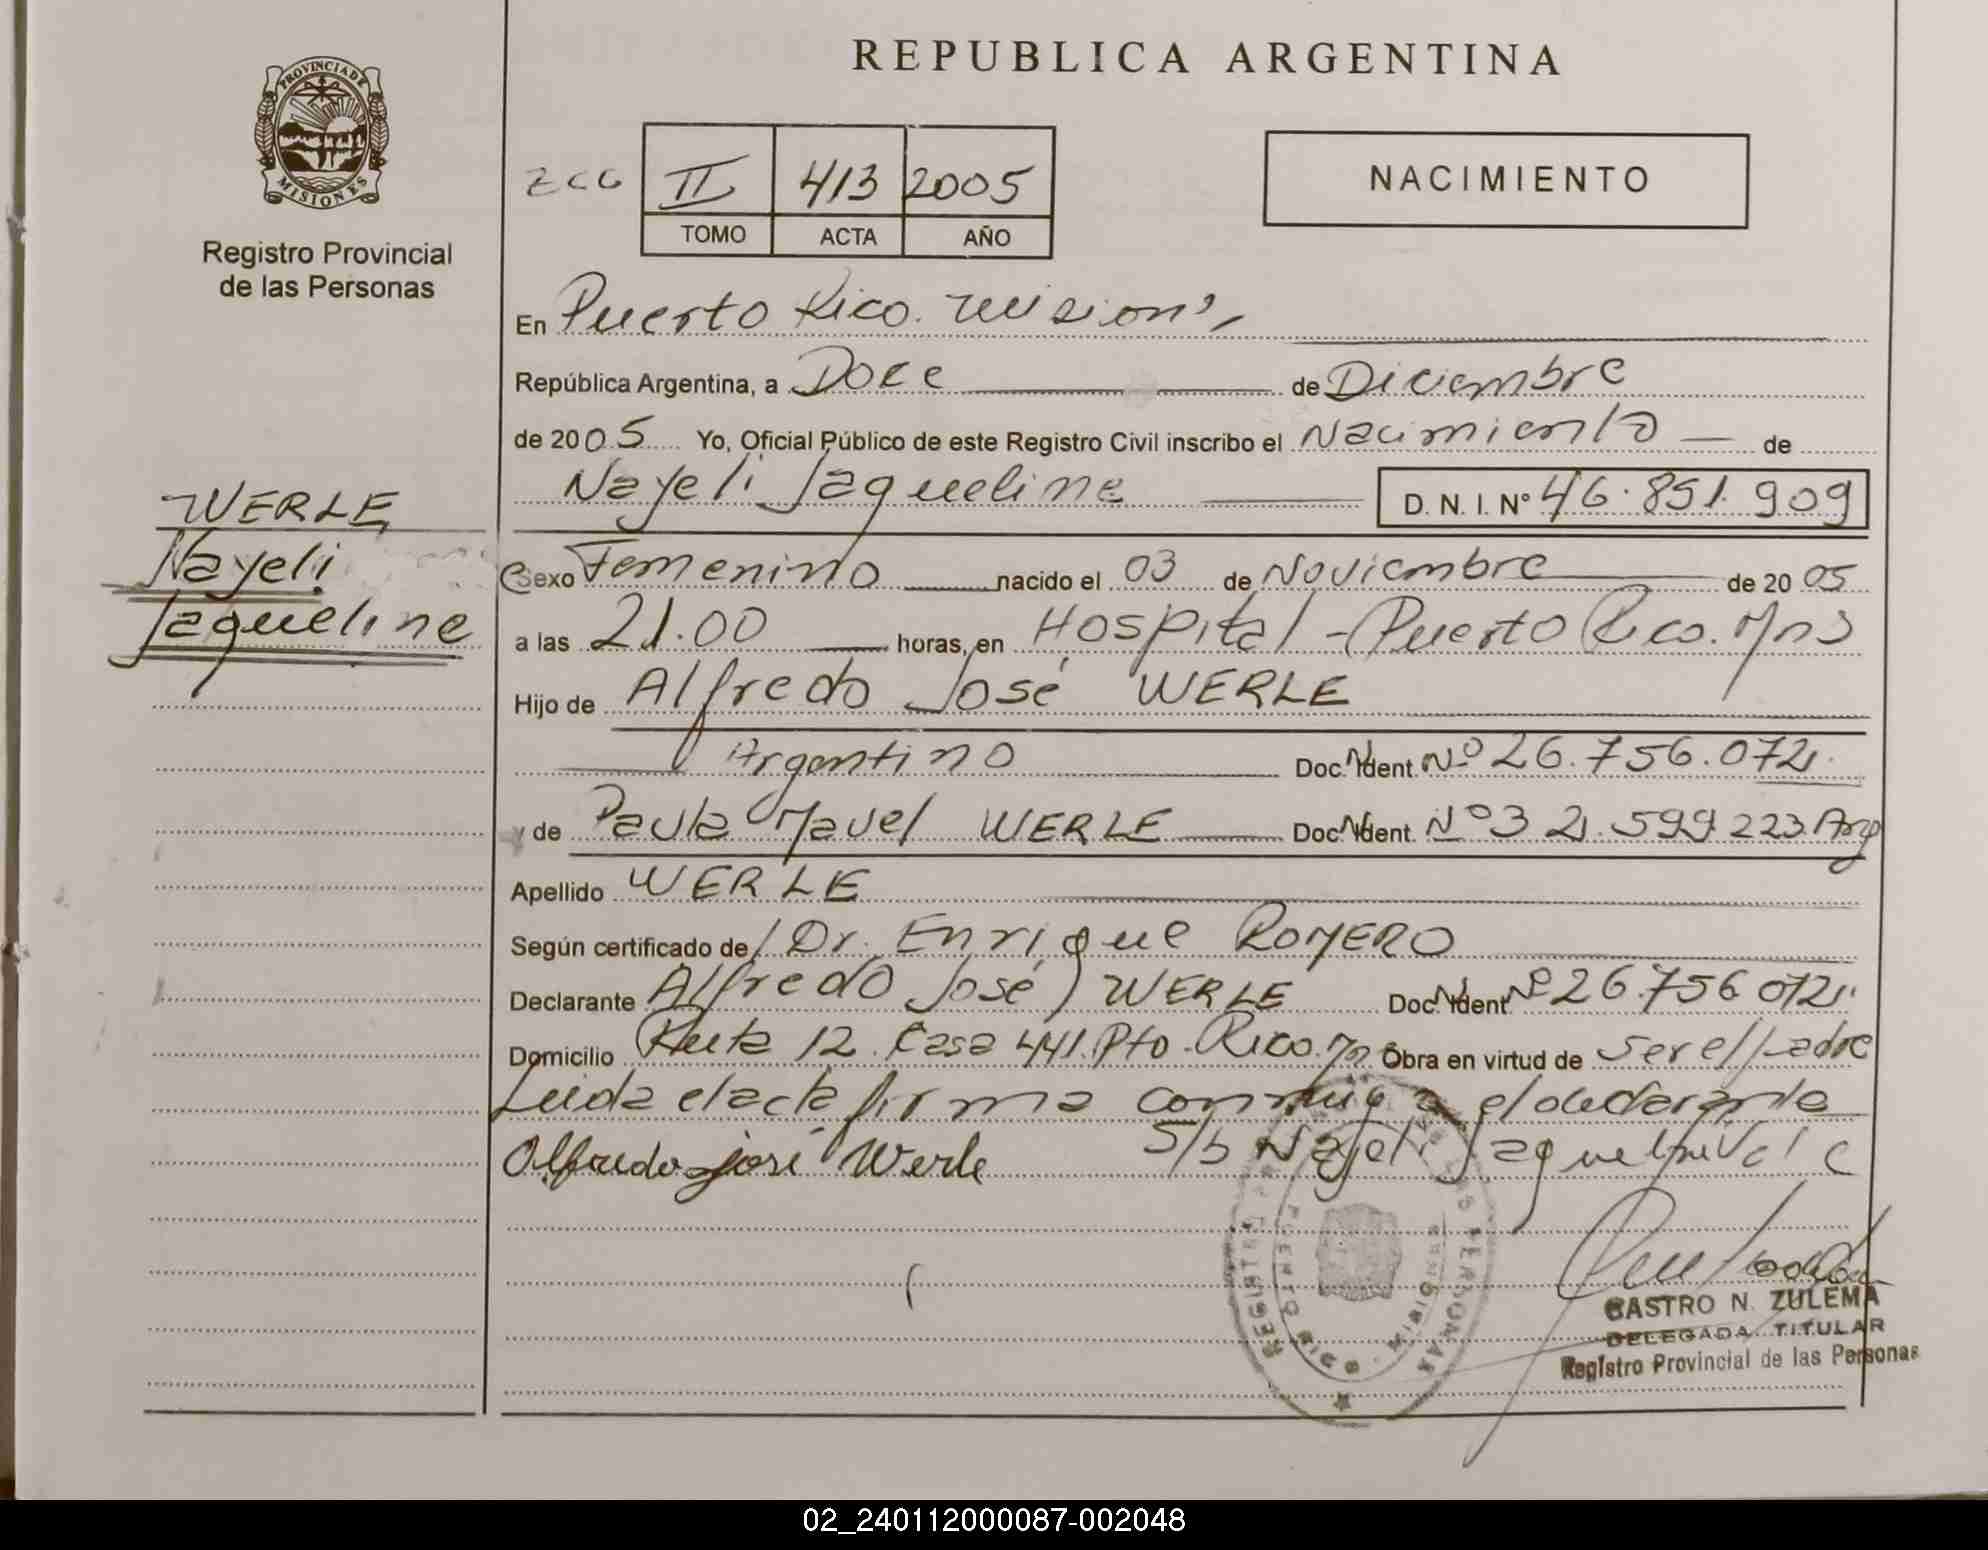 REPUBLICA ARGENTINA
PROVINCIA DE
MISIONES
Registro Provincial
de las Personas
II 413 2005
TOMO ACTA AÑO
NACIMIENTO
En Puerto Rico. Misiones
República Argentina, a Doce de Diciembre
de 2005 Yo, Oficial Público de este Registro Civil inscribo el Nacimiento de
Nayeli Jaqueline D. N. I. Nº 46.851.909
WERLE
Nayeli
Jaqueline
Sexo Femenino nacido el 03 de Noviembre de 2005
a las 21.00 horas, en Hospital - Puerto Rico. Mns
Hijo de Alfredo José WERLE
Argentino Doc. Ident. Nº 26.756.072
y de Paula Mavel WERLE Doc. Ident. Nº 32.599.223 Arg
Apellido WERLE
Según certificado de Dr. Enrique ROMERO
Declarante Alfredo José WERLE Doc. Ident. Nº 26.756.072
Domicilio Ruta 12. Casa 441. Pto. Rico. Mn Obra en virtud de ser el padre
Leida el acta firma conmigo el declarante
Alfredo josé Werle S/b Nayeli Jaqueline Vale
REGISTRO LAS PERSONAS
PUERTO RICO MISIONES
CASTRO N. ZULEMA
DELEGADA TITULAR
Registro Provincial de las Personas
02_240112000087-002048